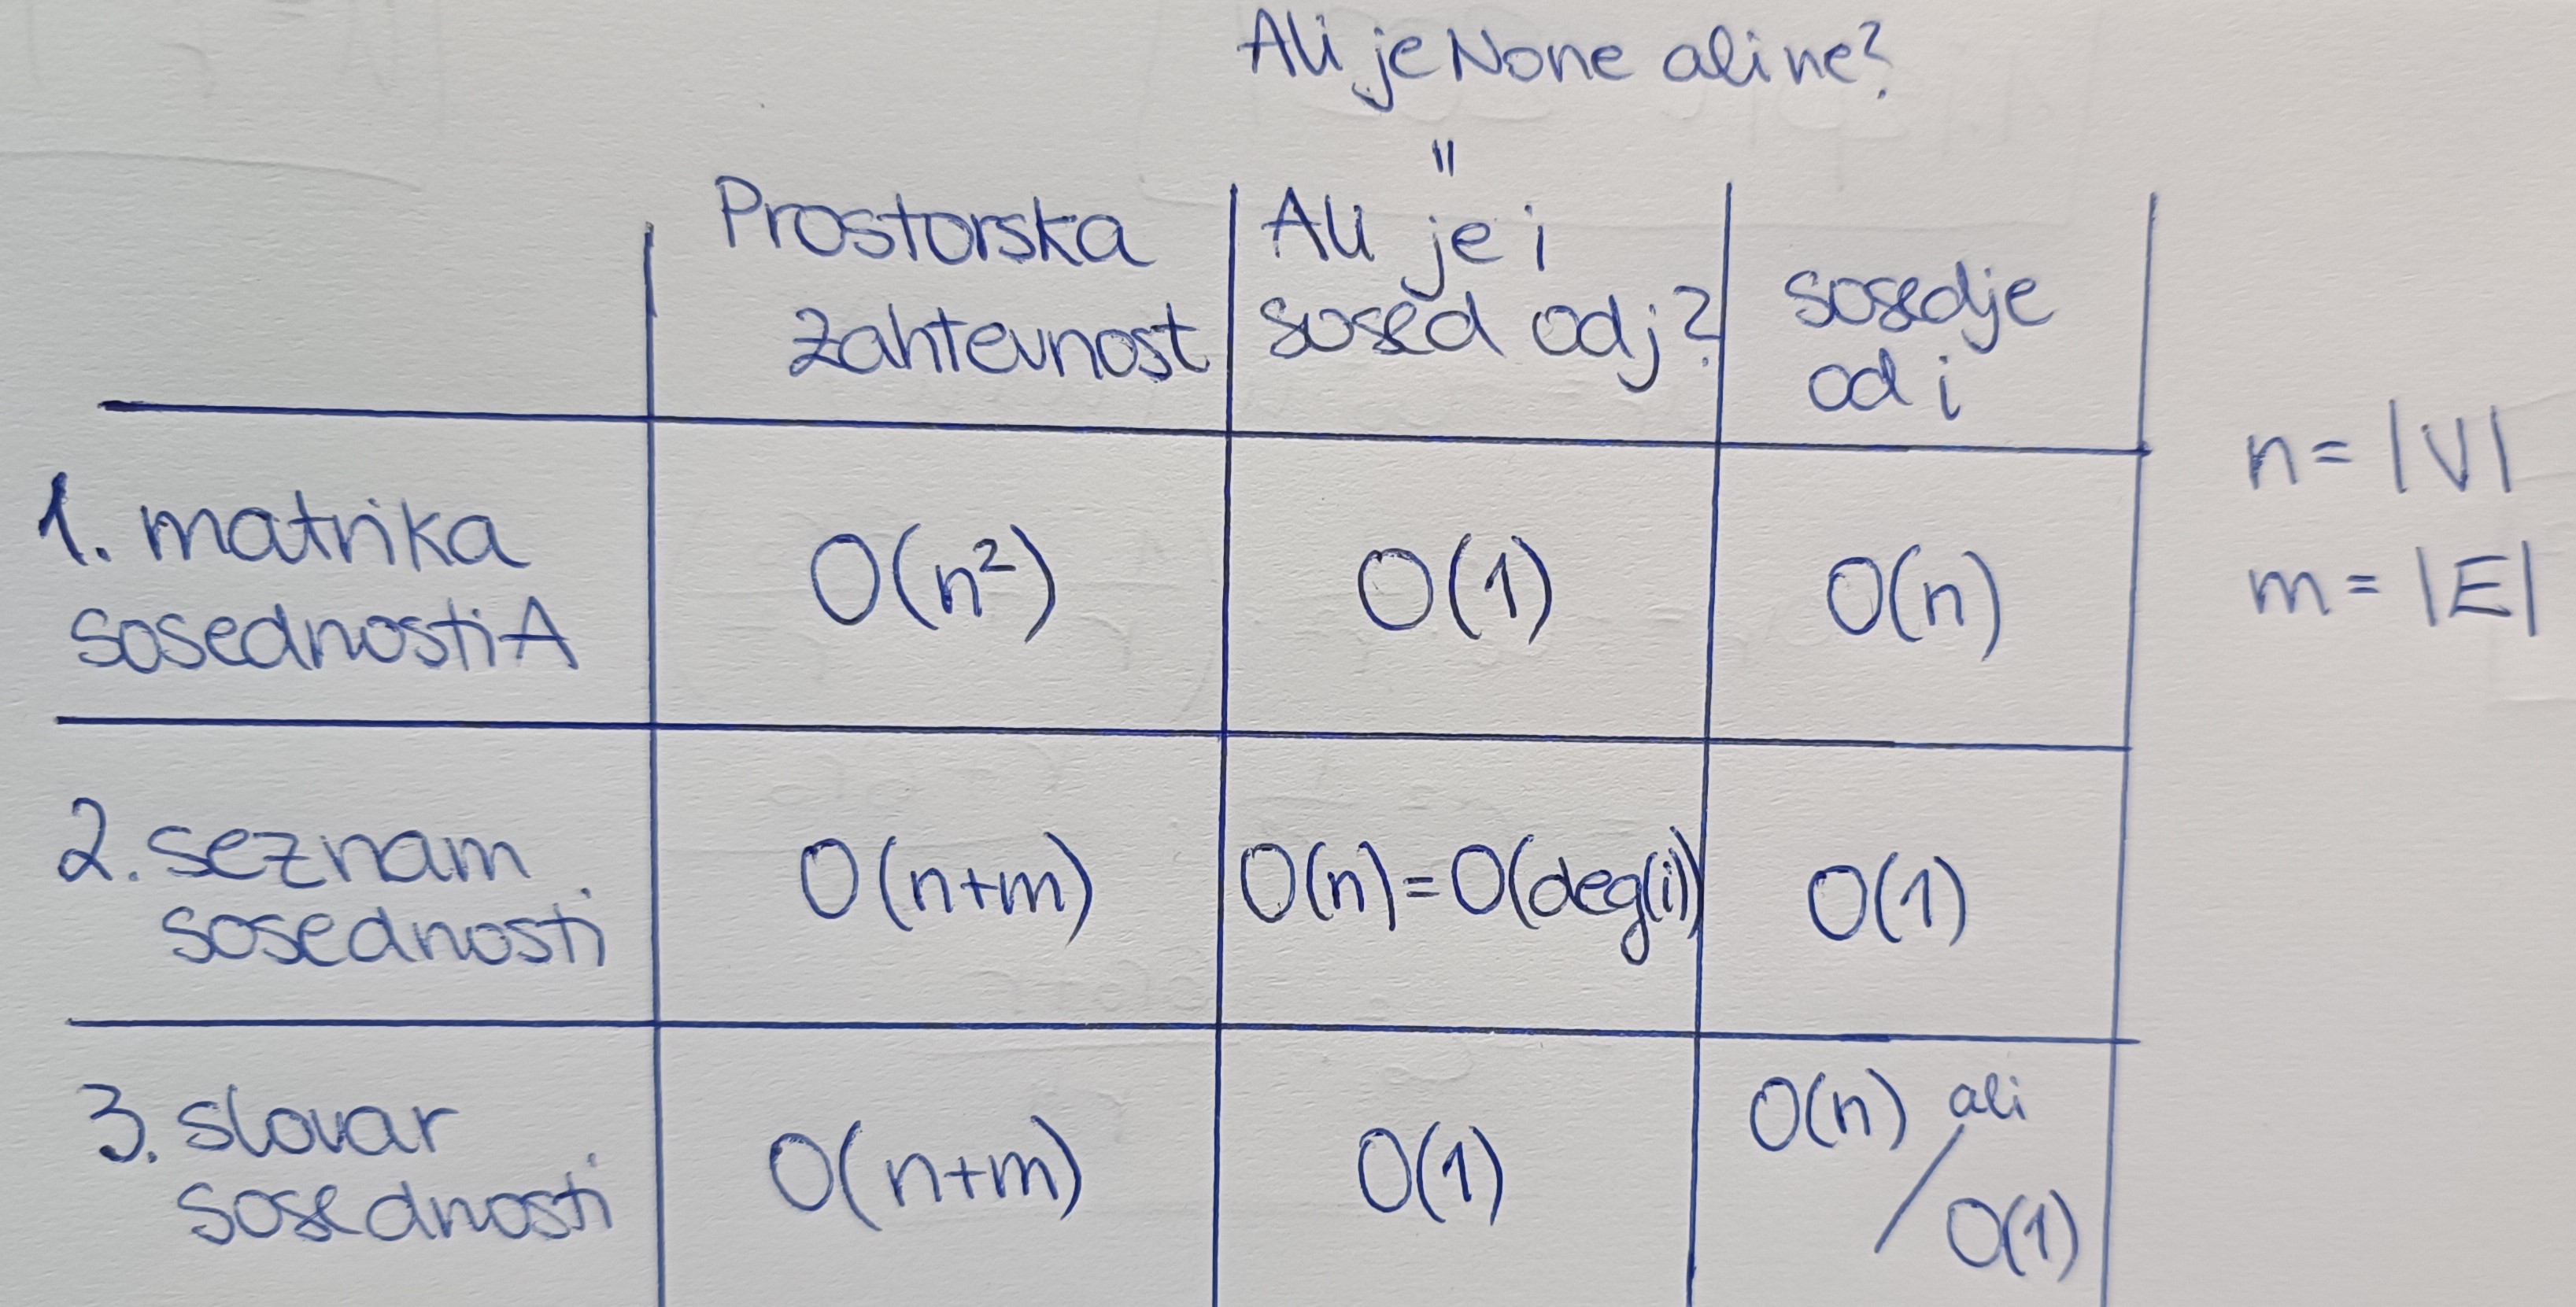 Ali je None ali ne?
=
Prostorska
zahtevnost
Ali je i
sosed od j?
sosedje
od i
n = |V|
m = |E|
1. matrika
sosednosti A
O(n²)
O(1)
O(n)
2. seznam
sosednosti
O(n+m)
O(n)=O(deg(i))
O(1)
3. slovar
sosednosti
O(n+m)
O(1)
O(n) ali
/ O(1)